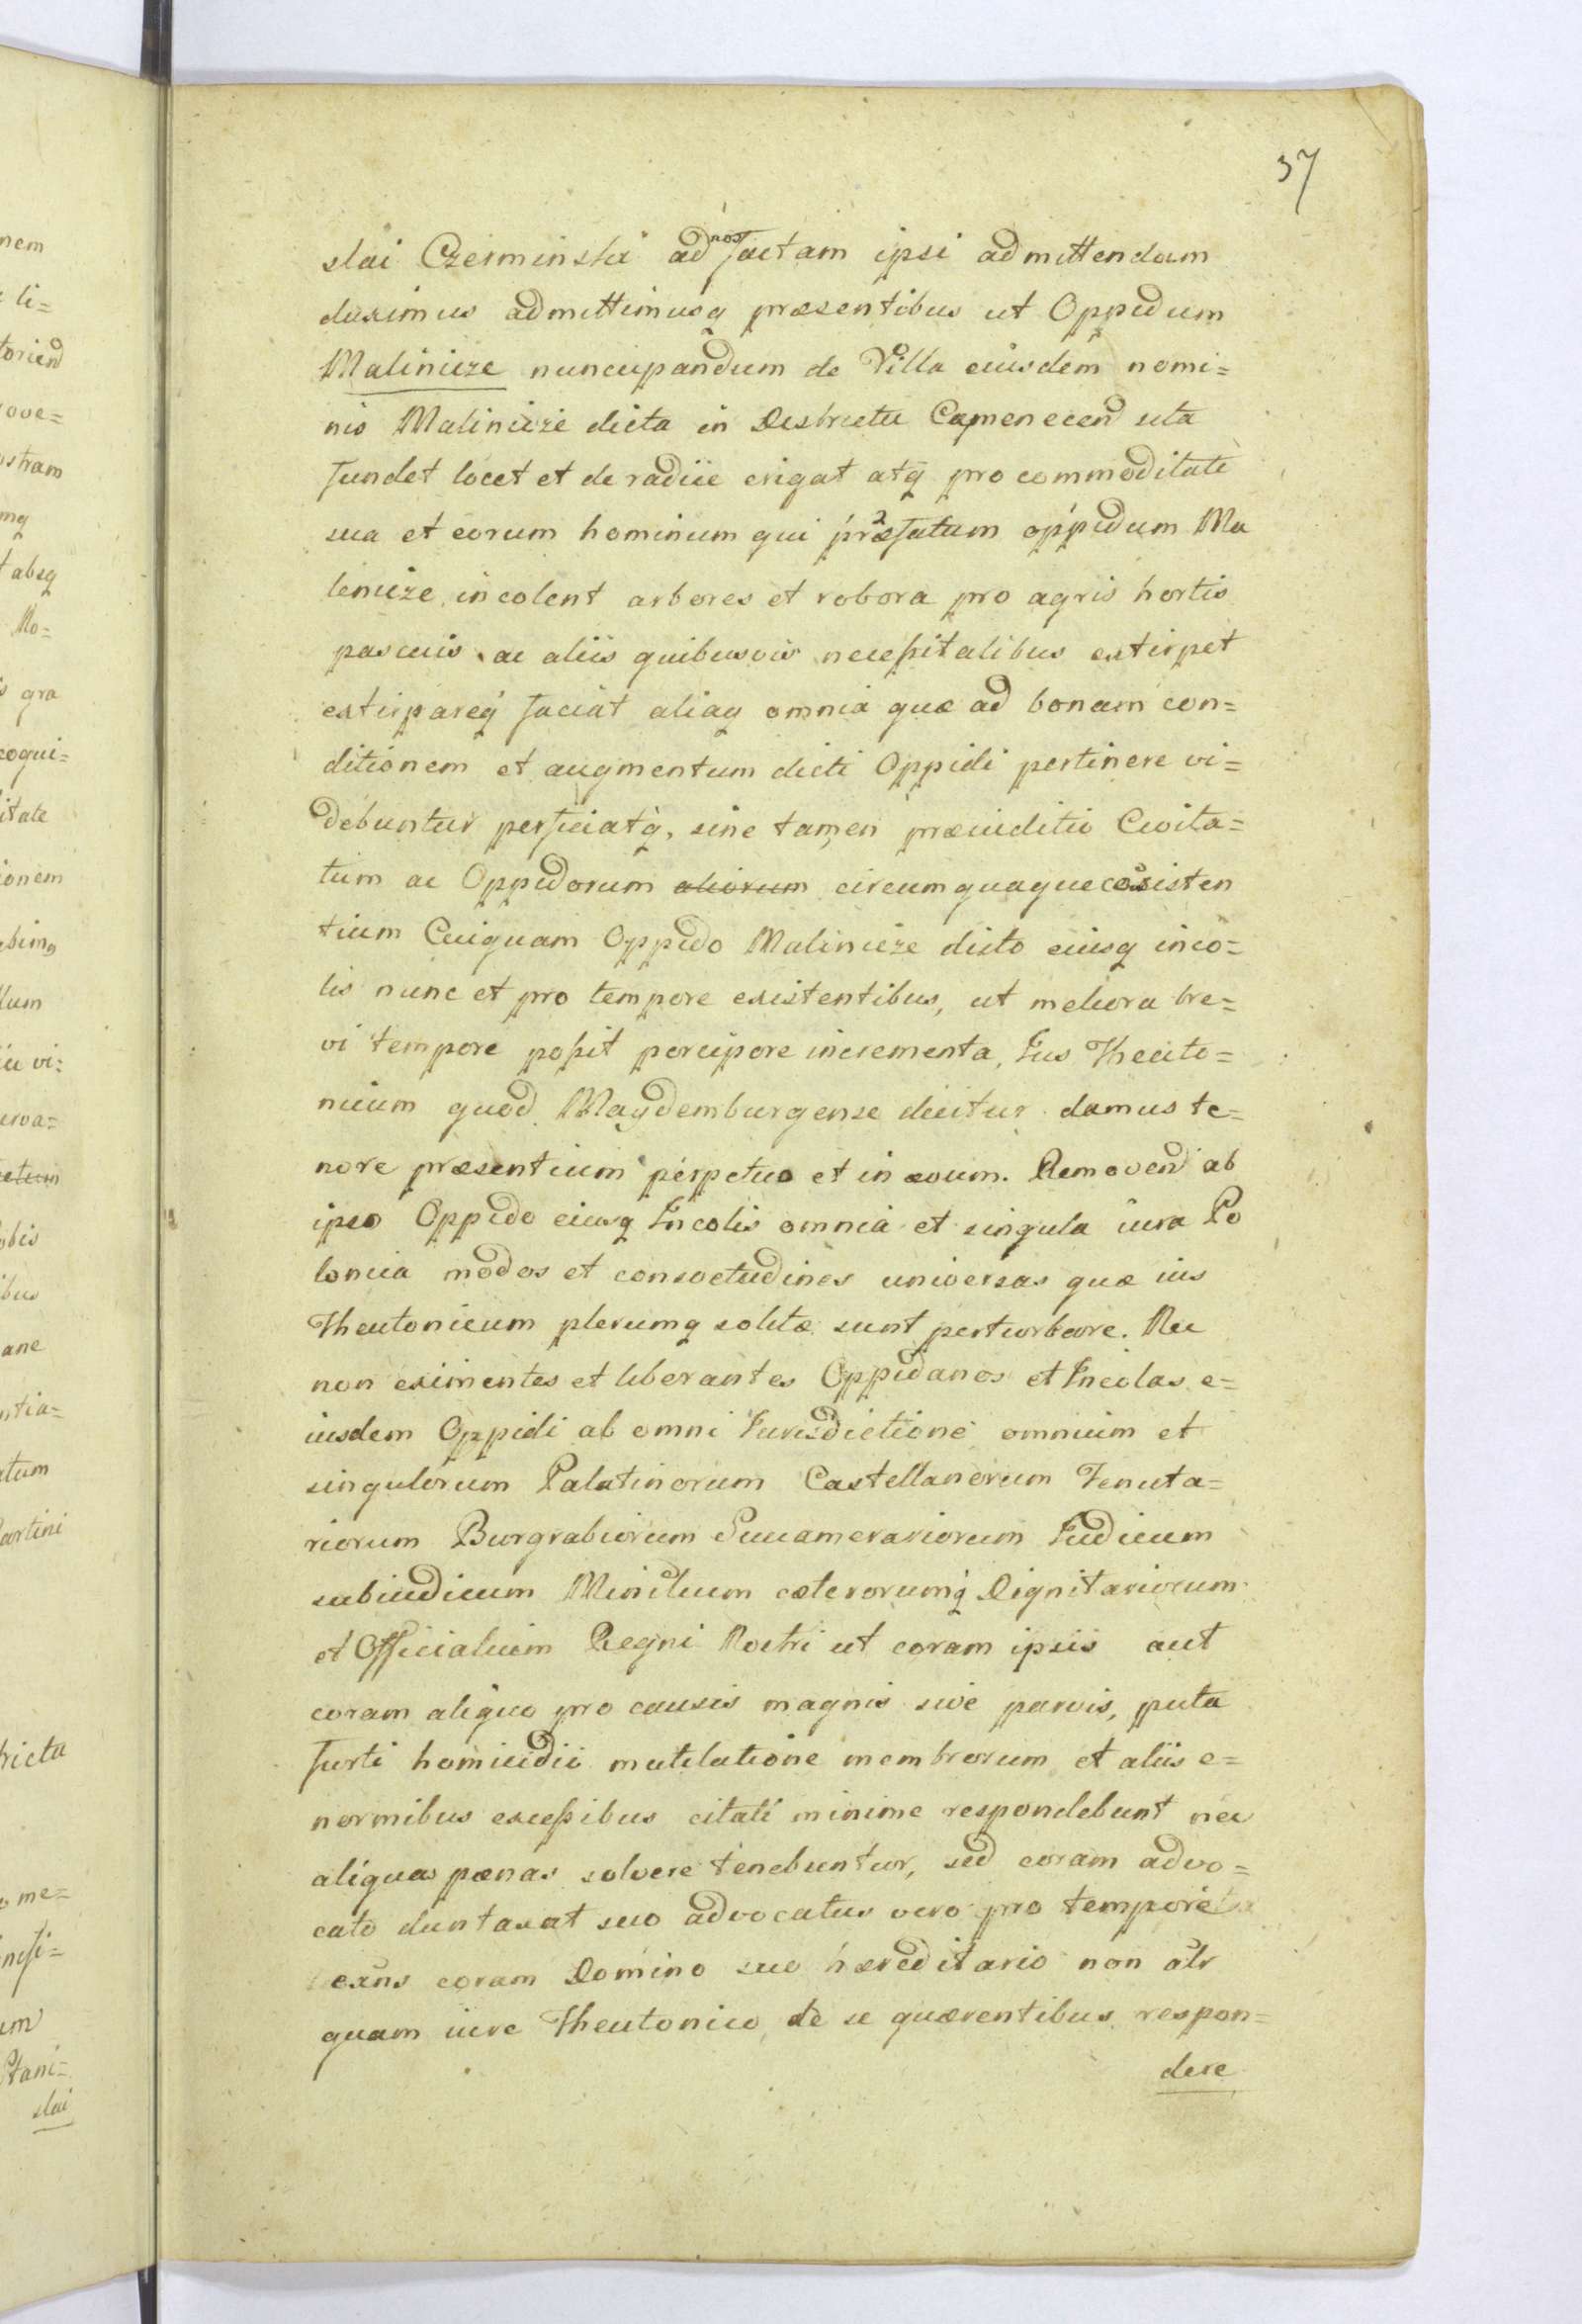 37
slai Czerminski ad nos factam ipsi admittendam
duximus admittimusq præsentibus ut Oppidum
Malinicze nuncupandum de Villa eiusdem nomi=
nis Malinicze dicta in Districtu Camenecen sita
fundet locet et de radice erigat atq pro commoditate
sua et eorum hominum qui præfatum oppidum Ma
linicze incolent arbores et robora pro agris hortis
pascuis ac aliis quibusvis necessitatibus extirpet
extirpareq faciat aliaq omnia quæ ad bonam con=
ditionem et augmentum dicti Oppidi pertinere vi=
debuntur perficiatq, sine tamen præiuditio Civita=
tum ac Oppidorum aliorum circumquaque coexisten
tium Cuiquam Oppido Malinicze dicto eiusq inco=
lis nunc et pro tempore existentibus, ut meliora bre=
vi tempore possit percipere incrementa, Ius Theuto=
nicum quod Maydemburgense dicitur damus te=
nore præsentium perpetuo et in ævum. Removen ab
ipso Oppido eiusq Incolis omnia et singula iura Po
lonica modos et consvetudines universas quæ ius
Theutonicum plerumq solitæ sunt perturbare. Nec
non eximentes et liberantes Oppidanos et Incolas e=
iusdem Oppidi ab omni Jurisdictione omnium et
singulorum Palatinorum Castellanorum Tenuta=
riorum Burgrabiorum Succamerariorum Iudicum
subiudicum Ministrum cæterorumq Dignitariorum
et Officialium Regni Nostri ut coram ipsis aut
coram aliquo pro causis magnis sive parvis, puta
furti homicidii mutilatione membrorum et aliis e=
normibus excessibus citati minime respondebunt nec
aliquas pænas solvere tenebuntur, sed coram advo=
cato duntaxat suo advocatus vero pro tempore
exns coram Domino suo hæreditario non altr
quam iure Theutonico de se quærentibus respon=
dere